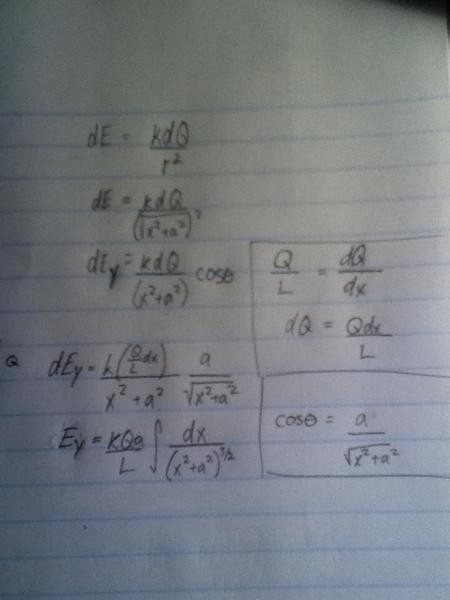 dE = kdQ / r²
dE = kdQ / (√x²+a²)²
dEy = kdQ / (x²+a²) cosθ
Q / L = dQ / dx
dQ = Qdx / L
Q
dEy = k(Q/L dx) / x²+a² a / √x²+a²
Ey = kQa / L ∫ dx / (x²+a²)^3/2
cosθ = a / √x²+a²